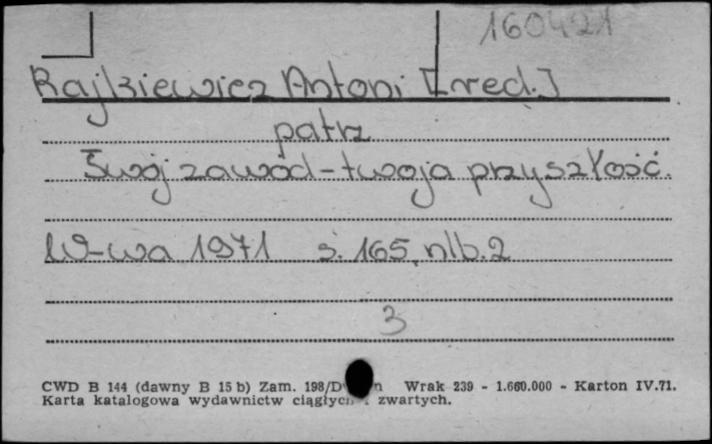 160421
Rajkiewicz Antoni [red.]
patrz
Swój zawód - twoja przyszłość.
W-wa 1971 s. 165, nlb. 2
3
CWD B 144 (dawny B 15 b) Zam. 198/D Wrak 239 - 1.660.000 - Karton IV.71.
Karta katalogowa wydawnictw ciągłych i zwartych.